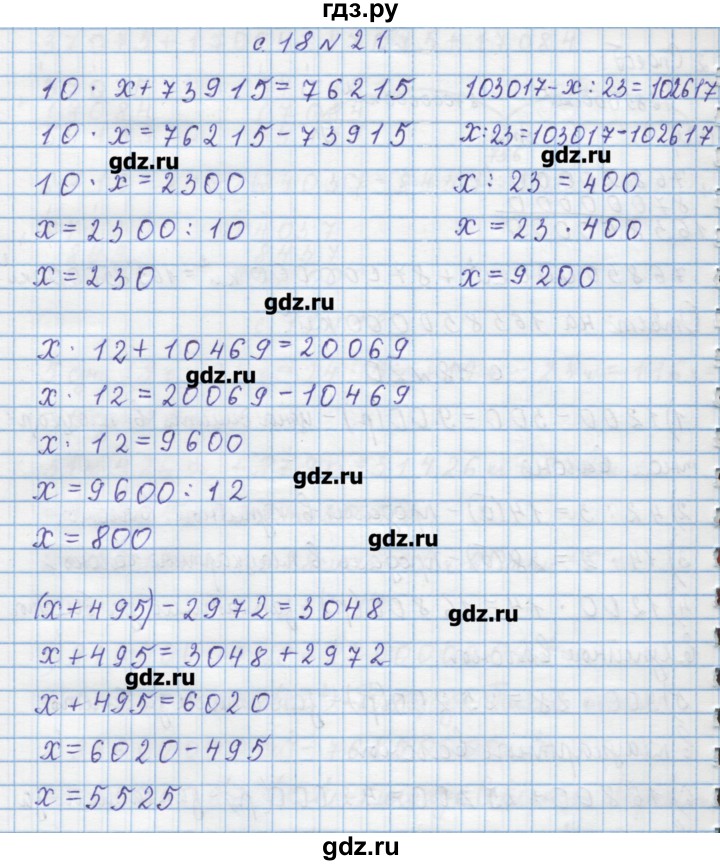 гдз.ру
с 18 № 21
10 · x + 73915 = 76215
10 · x = 76215 - 73915
gdz.ru
10 · x = 2300
x = 2300 : 10
x = 230
103017 - x : 23 = 102617
x : 23 = 103017 - 102617
gdz.ru
x : 23 = 400
x = 23 · 400
x = 9200
gdz.ru
x · 12 + 10469 = 20069
gdz.ru
x · 12 = 20069 - 10469
x · 12 = 9600
gdz.ru
x = 9600 : 12
x = 800
gdz.ru
(x + 495) - 2972 = 3048
gdz.ru
x + 495 = 3048 + 2972
gdz.ru
x + 495 = 6020
x = 6020 - 495
x = 5525
gdz.ru